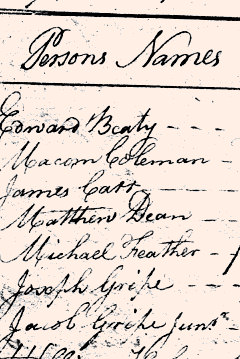 Persons Names
Edward Beaty
Macom Coleman
James Carr
Matthew Dean
Michael Feather
Joseph Gripe
Jacob Gripe Junr